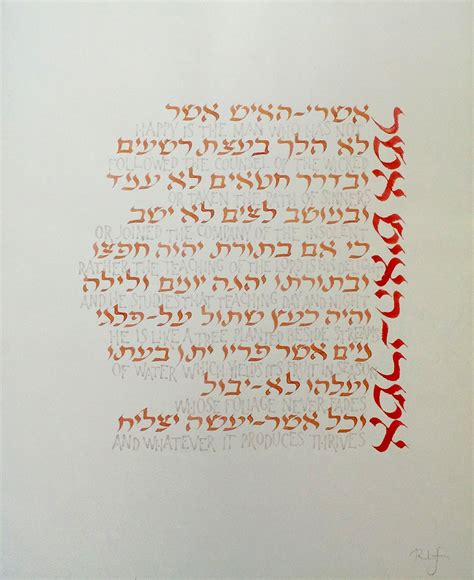 אשרי-האיש אשר
אשרי-האיש אשר
HAPPY IS THE MAN WHO HAS NOT
לא הלך בעצת רשעים
FOLLOWED THE COUNSEL OF THE WICKED
ובדרך חטאים לא עמד
OR TAKEN THE PATH OF SINNERS
ובמושב לצים לא ישב
OR JOINED THE COMPANY OF THE INSOLENT
כי אם בתורת יהוה חפצו
RATHER THE TEACHING OF THE LORD IS HIS DELIGHT
ובתורתו יהגה יומם ולילה
AND HE STUDIES THAT TEACHING DAY AND NIGHT
והיה כעץ שתול על-פלגי
HE IS LIKE A TREE PLANTED BESIDE STREAMS
מים אשר פריו יתן בעתו
OF WATER WHICH YIELDS ITS FRUIT IN SEASON
ועלהו לא-יבול
WHOSE FOLIAGE NEVER FADES
וכל אשר-יעשה יצליח
AND WHATEVER IT PRODUCES THRIVES